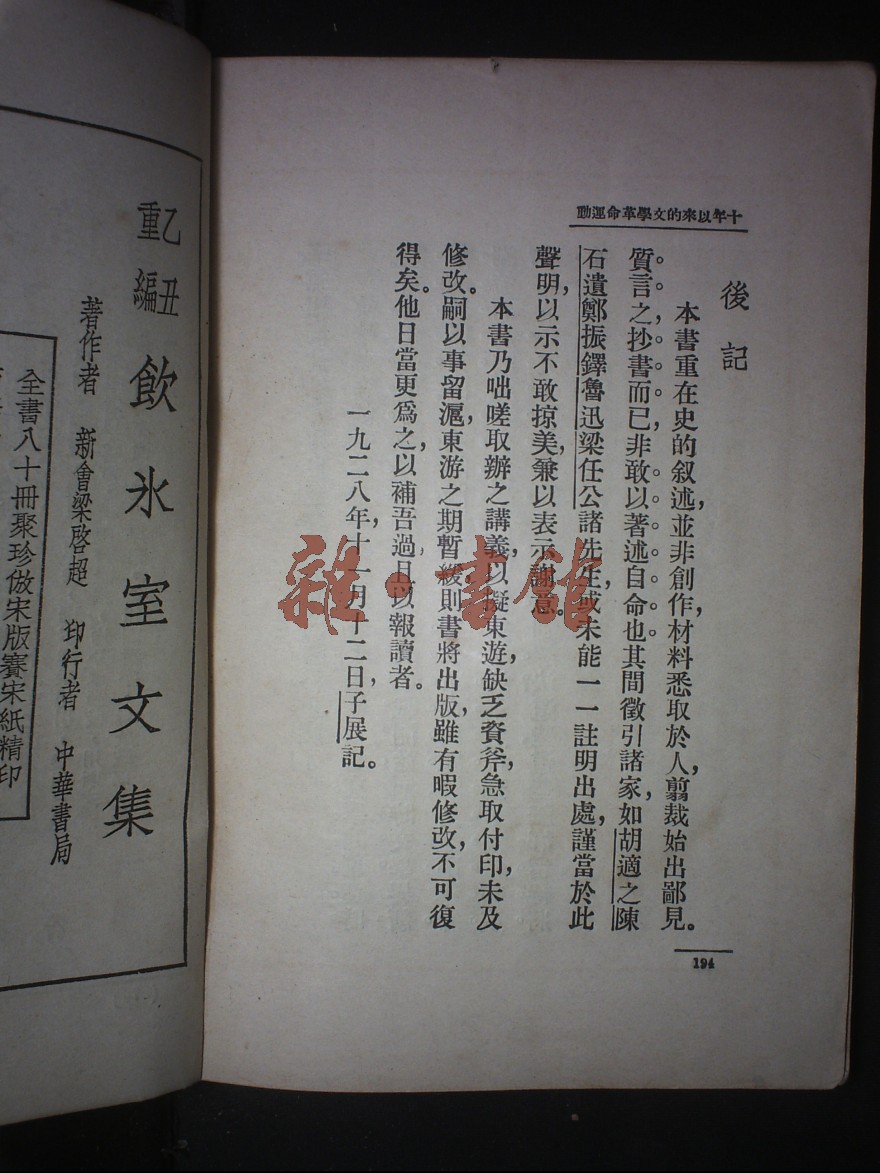 十年以來的文學革命運動
後記
本書重在史的叙述，並非創作，材料悉取於人，翦裁始出鄙見。
質言之，抄書而已，非敢以著述自命也。其間徵引諸家，如胡適之陳
石遺鄭振鐸魯迅梁任公諸先生，或未能一一註明出處，謹當於此
聲明，以示不敢掠美，兼以表示謝意。
本書乃咄嗟取辦之講義，以擬東遊，缺乏資斧，急取付印，未及
修改。嗣以事留滬，東游之期暫緩，則書將出版，雖有暇修改，不可復
得矣。他日當更爲之，以補吾過，且以報讀者。
一九二八年，十一月十二日，子展記。
194
雜·書館
乙丑
重編
飲氷室文集
著作者 新會梁啓超 印行者 中華書局
全書八十冊聚珍倣宋版賽宋紙精印